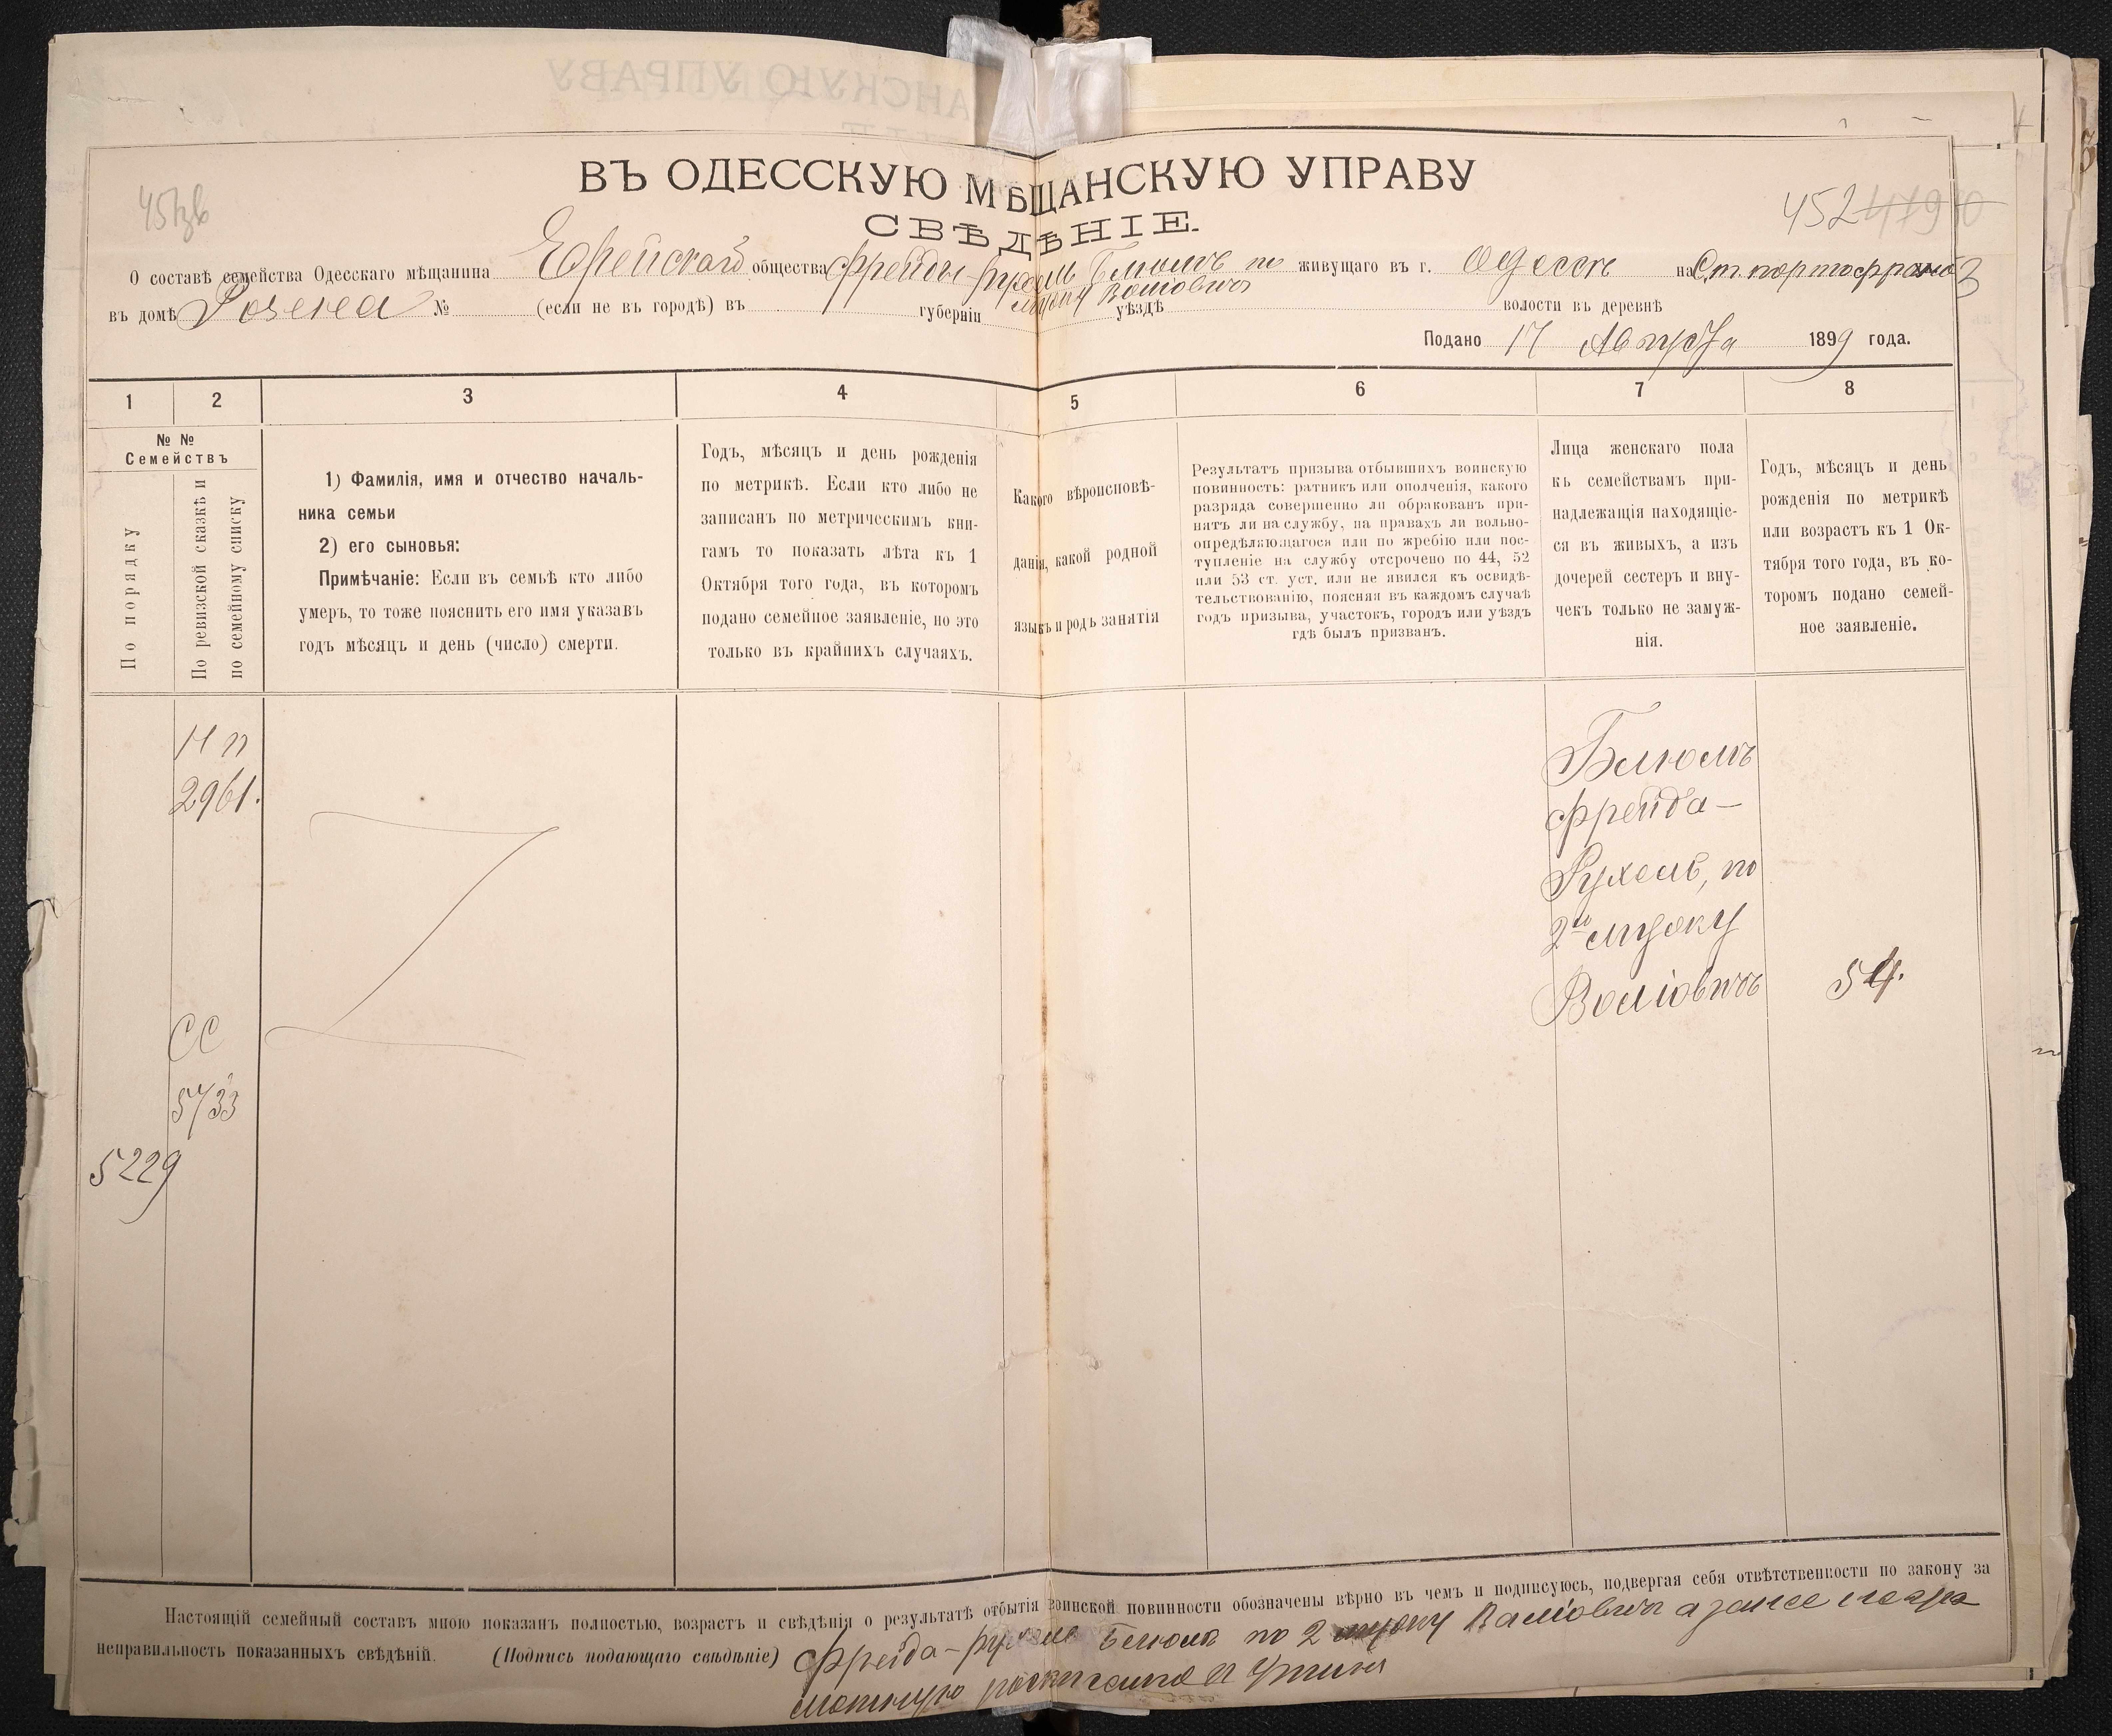 ВЪ ОДЕССКУЮ МѢЩАНСКУЮ УПРАВУ
СВѢДѢНІЕ.
452
О составѣ семейства Одесскаго мѣщанина Еврейскаго общества Фрейды-Рухель Блюмъ по живущаго въ г. Одессѣ на Ст. портофранко 3
мужу Воліовичъ
въ домѣ Розена № (если не въ городѣ) въ губерніи уѣздѣ волости въ деревнѣ
Подано 17 Августа 1899 года.
1 2 3 4 5 6 7 8
№ №
Семействъ
По порядку
По ревизской сказкѣ и
по семейному списку
1) Фамилія, имя и отчество началь-
ника семьи
2) его сыновья:
Примѣчаніе: Если въ семьѣ кто либо
умеръ, то тоже пояснить его имя указавъ
годъ мѣсяцъ и день (число) смерти.
Годъ, мѣсяцъ и день рожденія
по метрикѣ. Если кто либо не
записанъ по метрическимъ кни-
гамъ то показать лѣта къ 1
Октября того года, въ которомъ
подано семейное заявленіе, но это
только въ крайнихъ случаяхъ.
Какого вѣроисповѣ-
данія, какой родной
языкъ и родъ занятія
Результатъ призыва отбывшихъ воинскую
повинность: ратникъ или ополченія, какого
разряда совершенно ли обракованъ при-
нятъ ли на службу, на правахъ ли вольно-
опредѣляющагося или по жребію или пос-
тупленіе на службу отсрочено по 44, 52
или 53 ст. уст. или не явился къ освидѣ-
тельствованію, поясняя въ каждомъ случаѣ
годъ призыва, участокъ, городъ или уѣздъ
гдѣ былъ призванъ.
Лица женскаго пола
къ семействамъ при-
надлежащія находящіе-
ся въ живыхъ, а изъ
дочерей сестеръ и вну-
чекъ только не замуж-
нія.
Годъ, мѣсяцъ и день
рожденія по метрикѣ
или возрастъ къ 1 Ок-
тября того года, въ ко-
торомъ подано семей-
ное заявленіе.
Н п
2961.
СС
5733
5229
Блюмъ
Фрейда-
Рухель, по
2му мужу
Воліовичъ
54.
Настоящій семейный составъ мною показанъ полностью, возрастъ и свѣдѣнія о результатѣ отбытія воинской повинности обозначены вѣрно въ чемъ и подписуюсь, подвергая себя отвѣтственности по закону за
неправильность показанныхъ свѣдѣній. (Подпись подающаго свѣдѣніе) Фрейда-Рухель Блюмъ по 2 мужу Валіовичъ а за нее негра
мотную